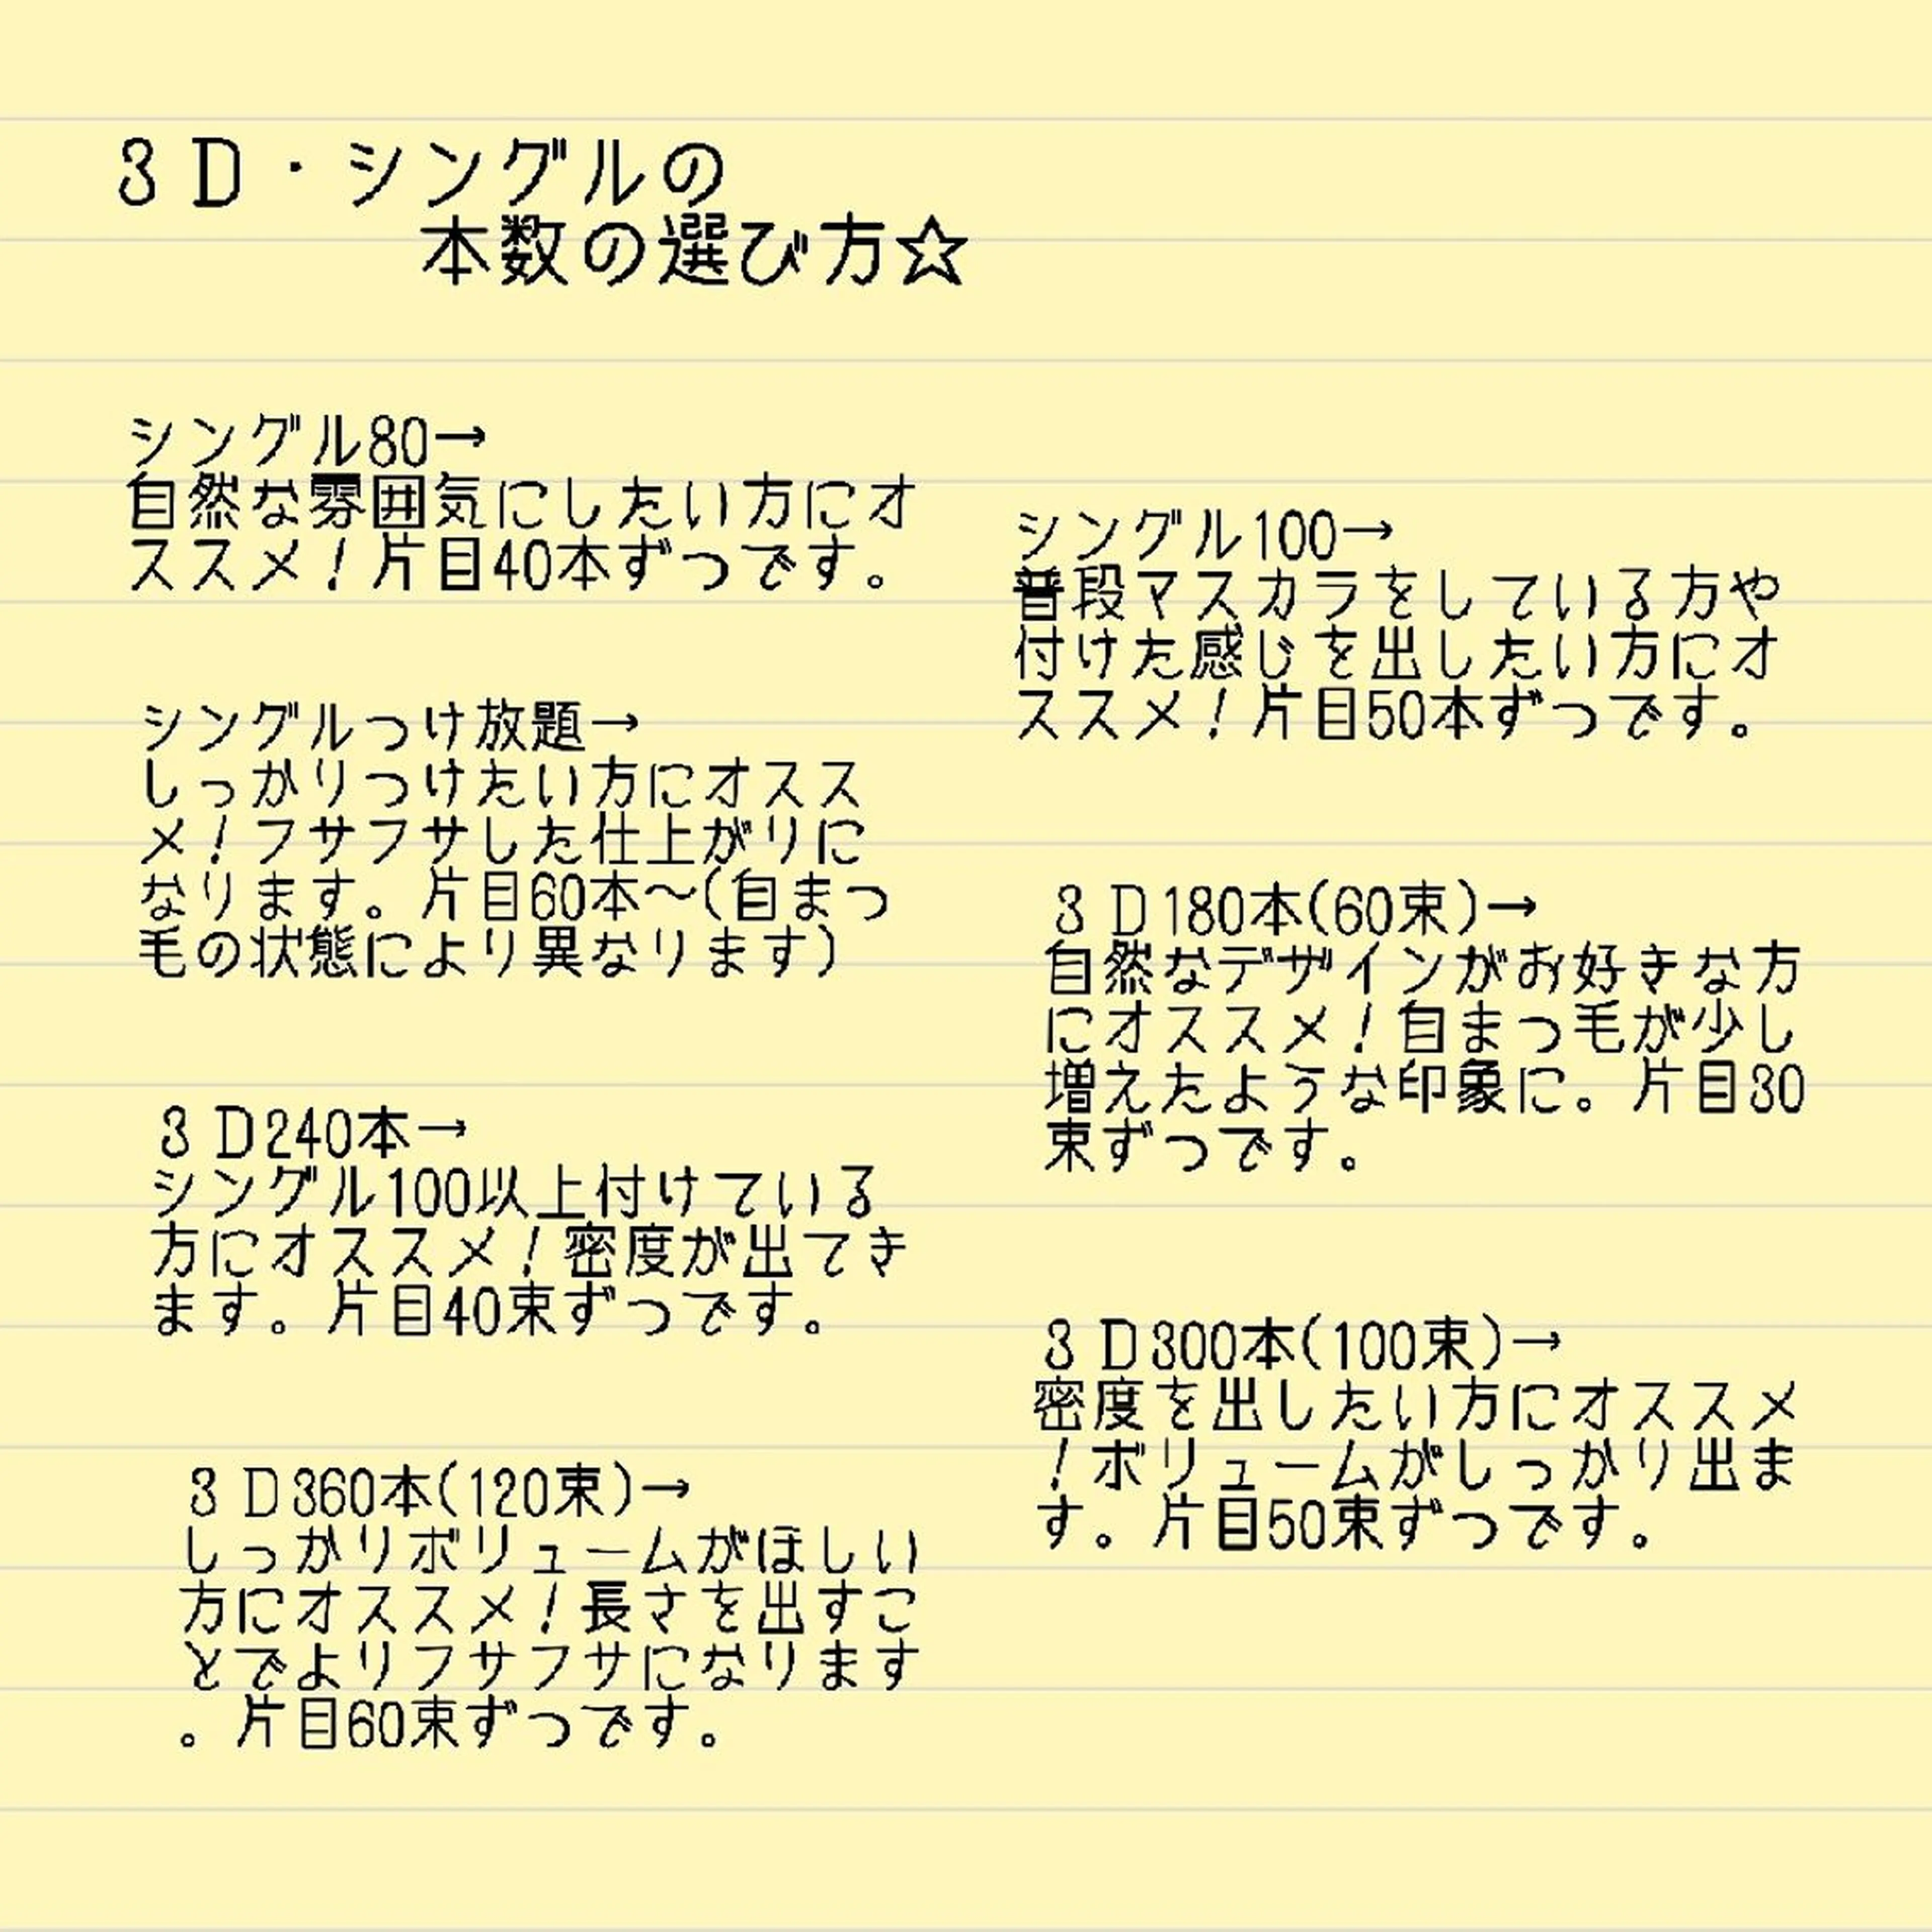 ３Ｄ・シングルの
本数の選び方☆
シングル80→
自然な雰囲気にしたい方にオ
ススメ！片目40本ずつです。
シングル100→
普段マスカラをしている方や
付けた感じを出したい方にオ
ススメ！片目50本ずつです。
シングルつけ放題→
しっかりつけたい方にオスス
メ！フサフサした仕上がりに
なります。片目60本〜(自まつ
毛の状態により異なります)
３Ｄ180本(60束)→
自然なデザインがお好きな方
にオススメ！自まつ毛が少し
増えたような印象に。片目30
束ずつです。
３Ｄ240本→
シングル100以上付けている
方にオススメ！密度が出てき
ます。片目40束ずつです。
３Ｄ300本(100束)→
密度を出したい方にオススメ
！ボリュームがしっかり出ま
す。片目50束ずつです。
３Ｄ360本(120束)→
しっかりボリュームがほしい
方にオススメ！長さを出すこ
とでよりフサフサになります
。片目60束ずつです。